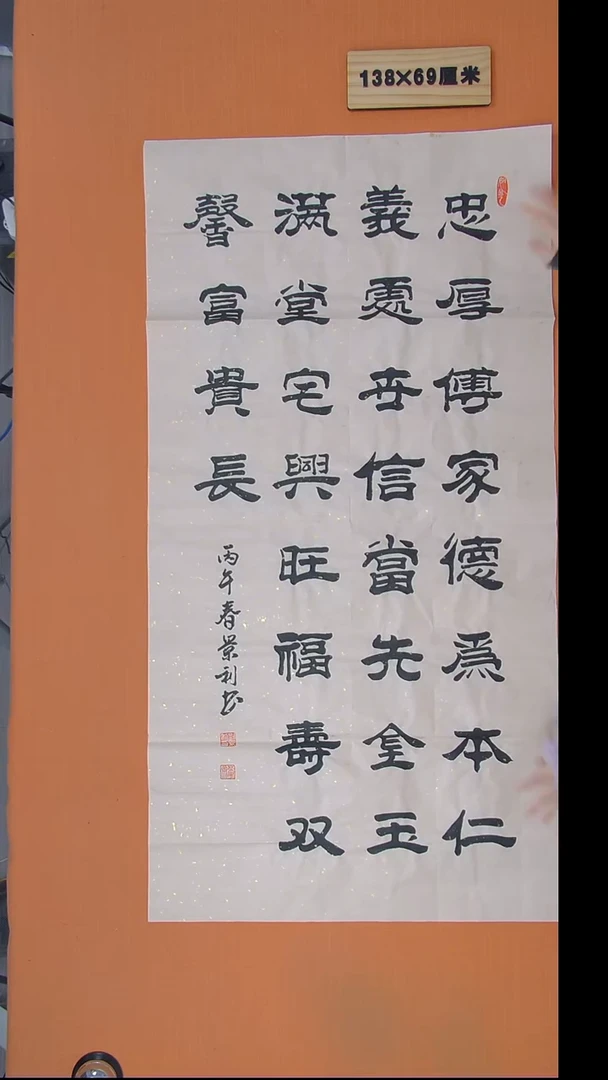 138×69厘米
忠厚傳家德為本仁
義處世信當先金玉
滿堂宅興旺福壽双
馨富貴長
丙午春景利书